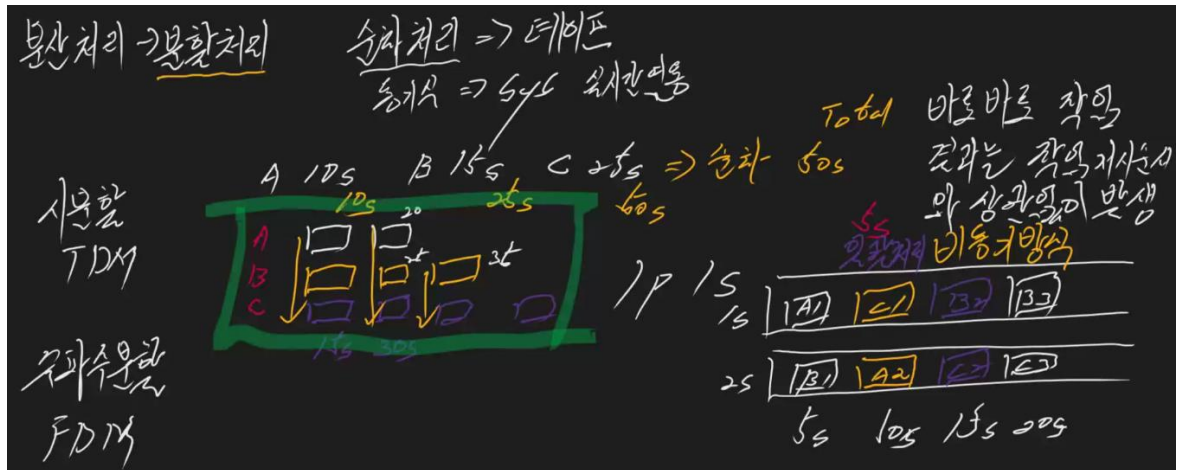 분산처리 → 분할처리
순차처리 => 테이프
동기식 => sys 실시간 연동
A 10s B 15s C 25s => 순차 50s
Total
바로바로 작업
결과는 작업 지시순서
와 상관없이 발생
시분할
TDM
10s 25s 50s
20
A
B 25 35
C
15s 30s
주파수분할
FDM
1p 1s
5s
일괄처리 비동기방식
1s A1 C1 B2 B3
2s B1 A2 C2 C3
5s 10s 15s 20s